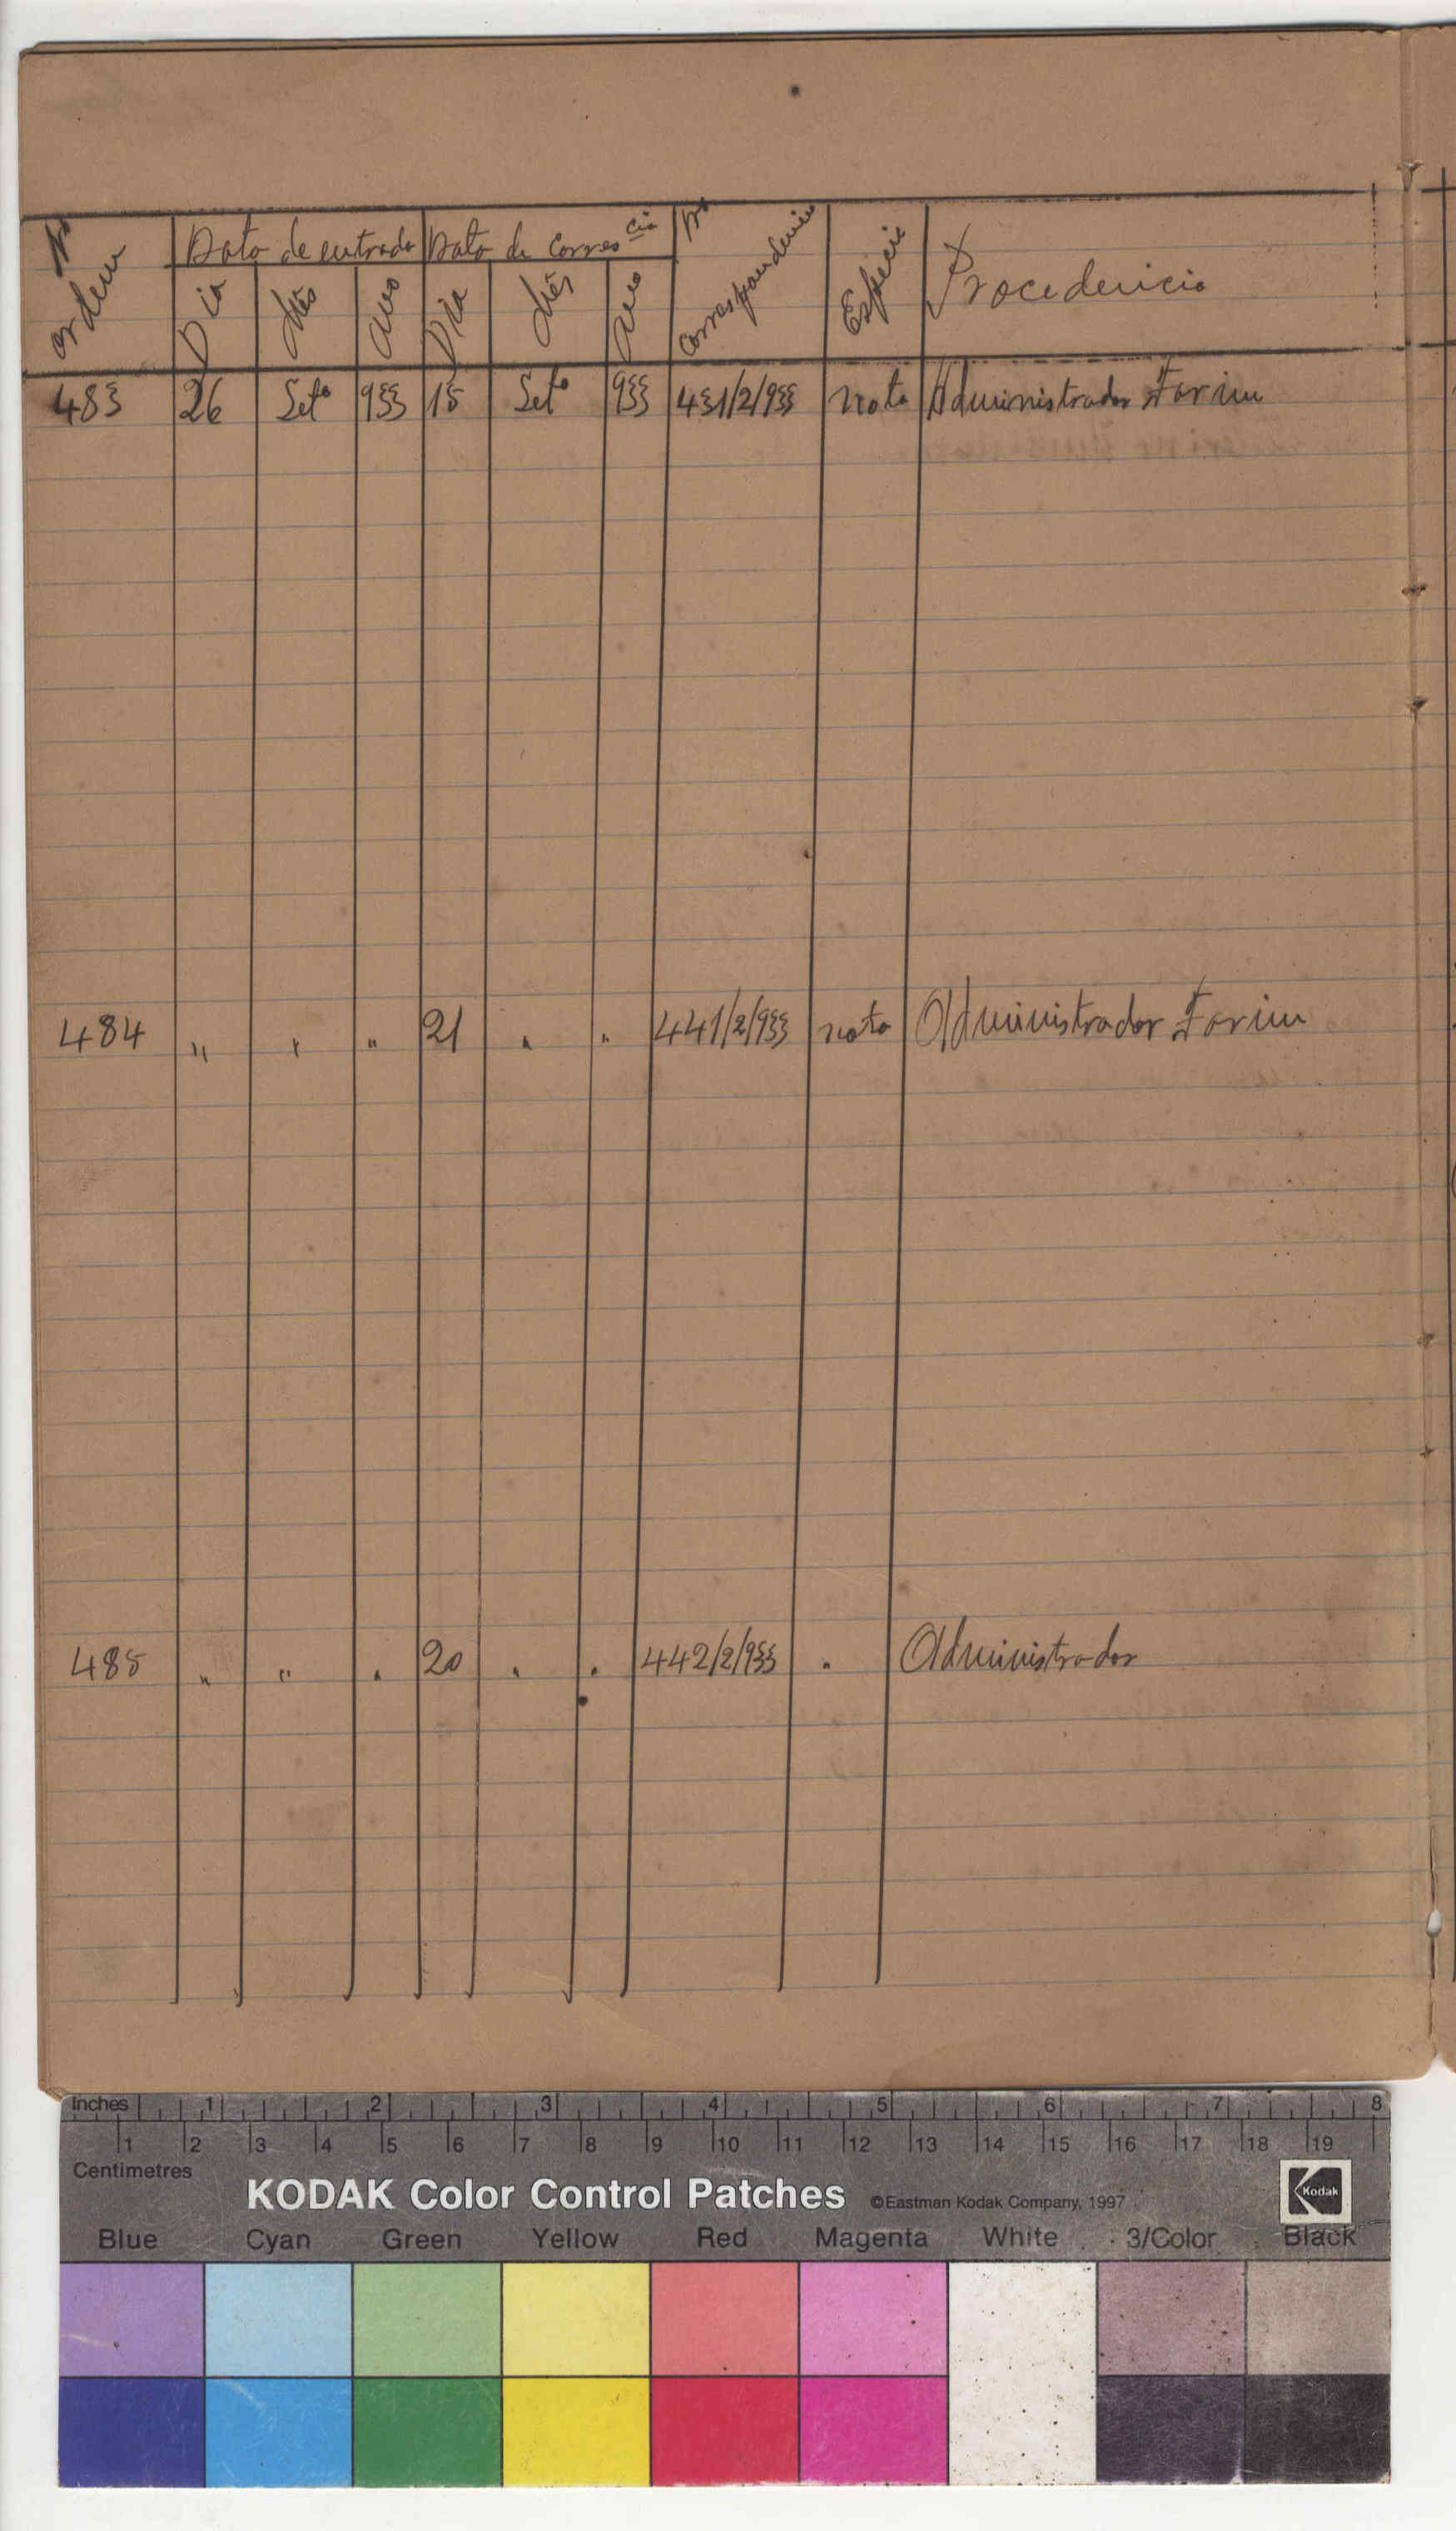 Nº ordem Data de entrada Data de corres.cia Nº correspondencia Especie Procedencia
Dia Mês Ano Dia Mês Ano
483 26 Setº 933 15 Setº 933 431/2/933 nota Administrador Farim
484 " " " 21 " " 441/2/933 nota Administrador Farim
485 " " " 20 " " 442/2/933 " Administrador
Inches 1 2 3 4 5 6 7 8
1 2 3 4 5 6 7 8 9 10 11 12 13 14 15 16 17 18 19
Centimetres
KODAK Color Control Patches ©Eastman Kodak Company, 1997 Kodak
Blue Cyan Green Yellow Red Magenta White 3/Color Black